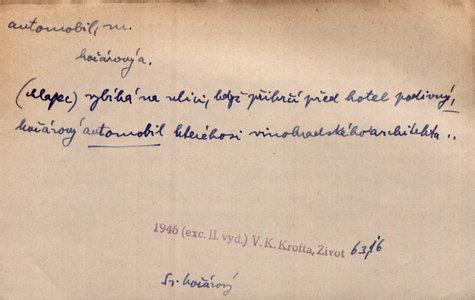 automobil, m.
kočárový a.
(chlapec) vybíhá na ulici, když přihrčí před hotel podivný,
kočárový automobil kteréhosi vinohradského architekta..
1946 (exc. II. vyd.) V. K. Krofta, Život 63,16
Sr. kočárový